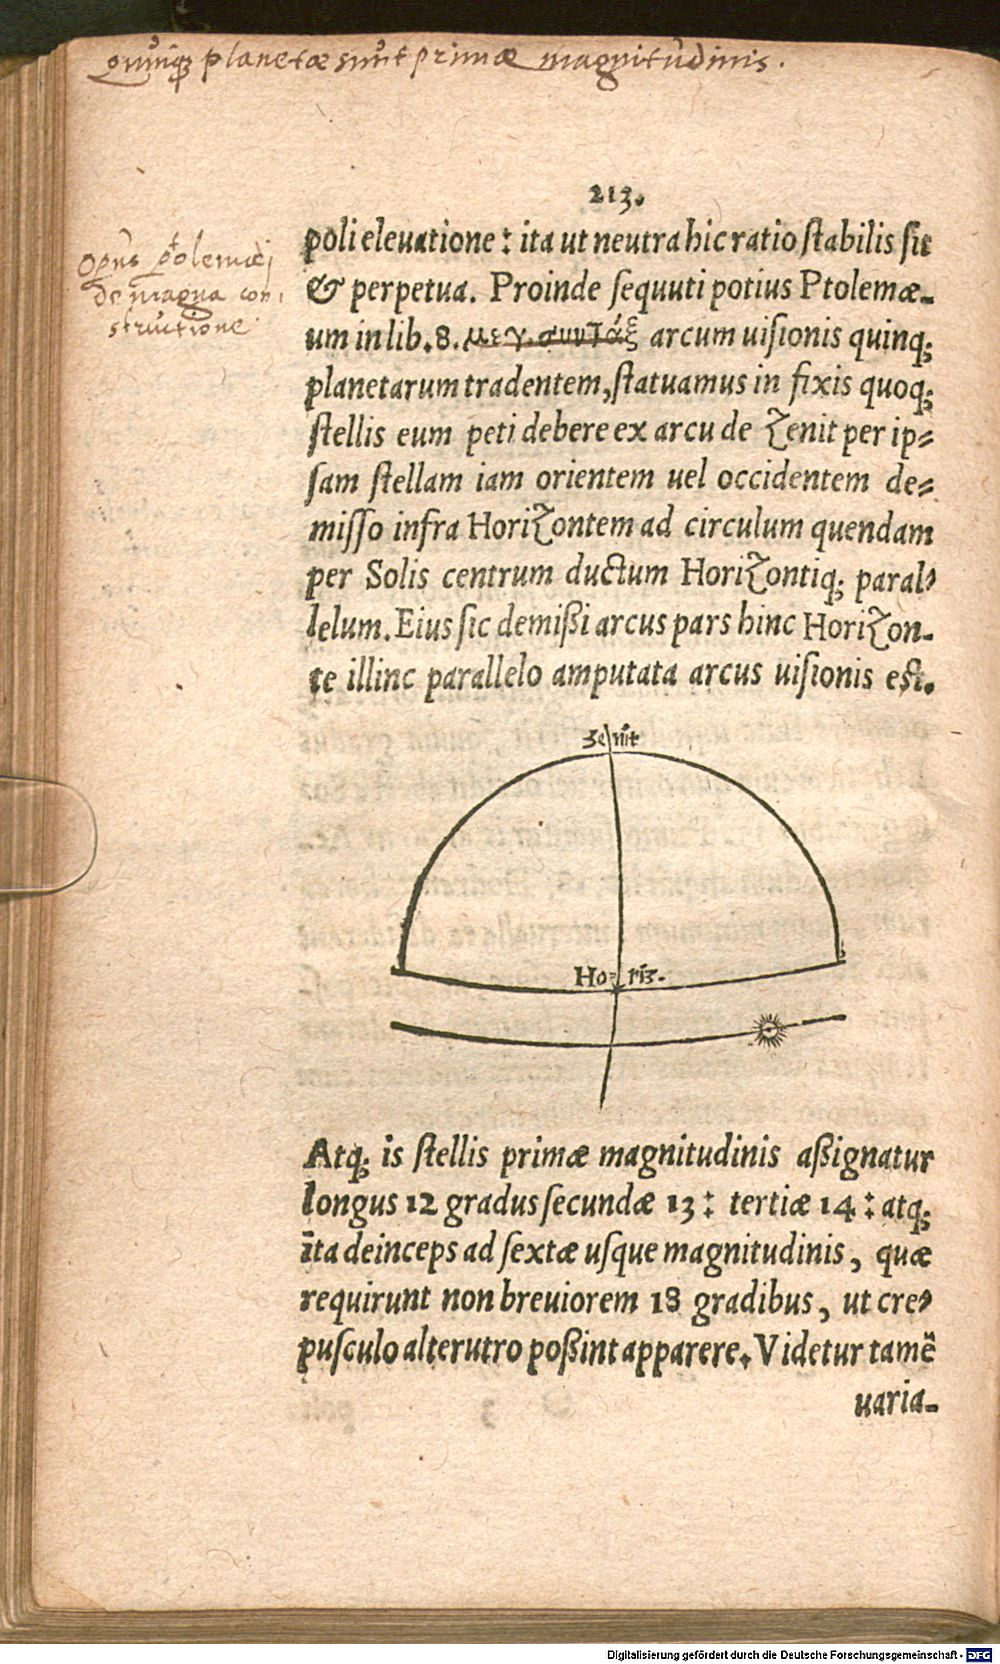 quinq; planetæ sunt primæ magnitudinis.
213.
Opus ptolemæi
de magna con
structione
poli eleuatione: ita ut neutra hic ratio ſtabilis ſit
& perpetua. Proinde ſequuti potius Ptolemæ-
um in lib. 8. μεγ. συντάξ arcum uiſionis quinq;
planetarum tradentem, ſtatuamus in fixis quoq;
ſtellis eum peti debere ex arcu de Zenit per ip-
ſam ſtellam iam orientem uel occidentem de-
miſſo infra Horizontem ad circulum quendam
per Solis centrum ductum Horizontiq; paral-
lelum. Eius ſic demißi arcus pars hinc Horizon-
te illinc parallelo amputata arcus uiſionis eſt.
Zenit
Ho- riz.
Atq; is ſtellis primæ magnitudinis aßignatur
longus 12 gradus ſecundæ 13: tertiæ 14: atq;
ita deinceps ad ſextæ uſque magnitudinis, quæ
requirunt non breuiorem 18 gradibus, ut cre-
puſculo alterutro poßint apparere. Videtur tamẽ
uaria-
Digitalisierung gefördert durch die Deutsche Forschungsgemeinschaft - DFG